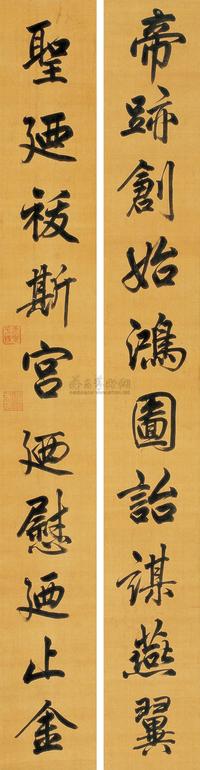 帝跡創始鴻圖詒謀燕翼
聖廼祓斯宮廼慰廼止金